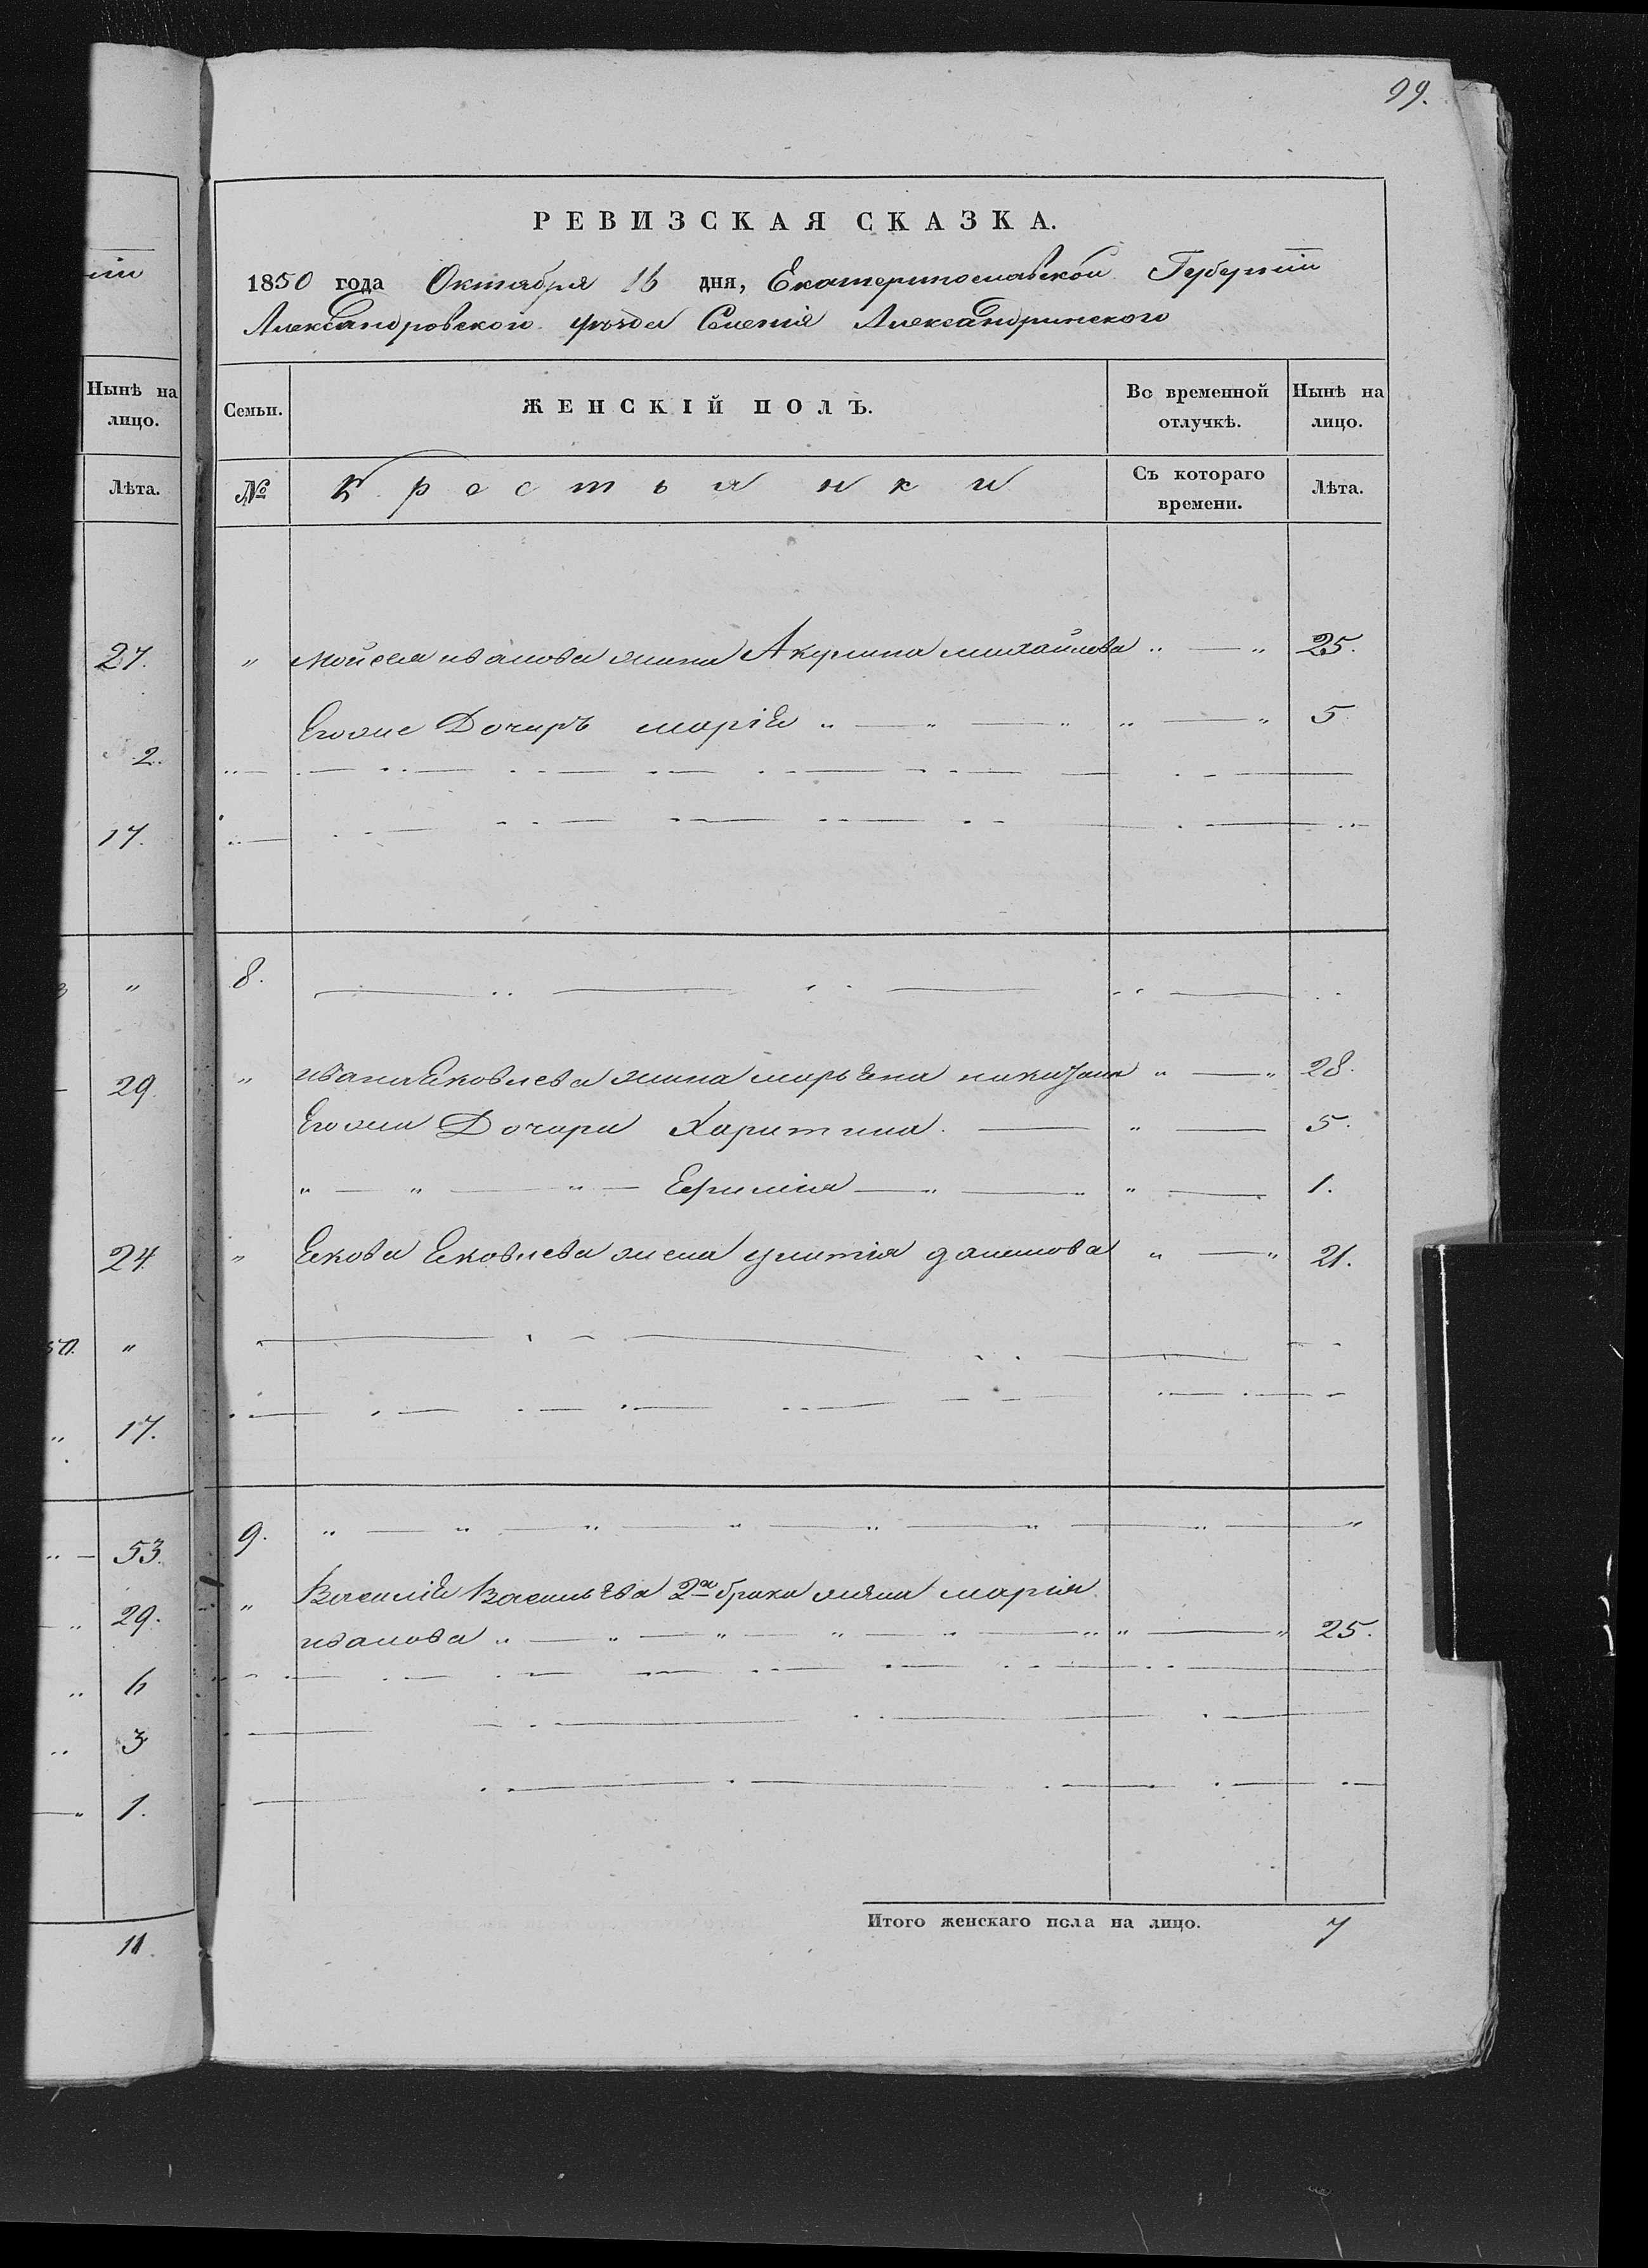 99.
РЕВИЗСКАЯ СКАЗКА.
1850 года Октября 16 дня, Екатеринославской Губерніи
Александровского уѣзда Селенія Александринского
Нынѣ на лицо.
Лѣта.
Семьи.
ЖЕНСКІЙ ПОЛЪ.
Во временной отлучкѣ.
Нынѣ на лицо.
№
Крестьянки
Съ котораго времени.
Лѣта.
27.
" Мойсея иванова жина Акулина михайлова " — " 25.
Егоже Дочиръ марія " — " — " " — " 5
2.
17.
8.
"
29. " ивана Яковлева жина марьяна " — " 28.
Егожи Дочири Харитина — " — 5.
" — " — " — Ефимія — " — " " — 1.
24 " Якова Яковлева жена улитія данилова " — " 21.
"
17.
53. 9. " — " — " — " — " — " — " — "
29. " Василія Васильева 2го брака жена марія
иванова " — " — " — " — " — " " — " 25.
6
3
1.
Итого женскаго пола на лицо. 7
11.